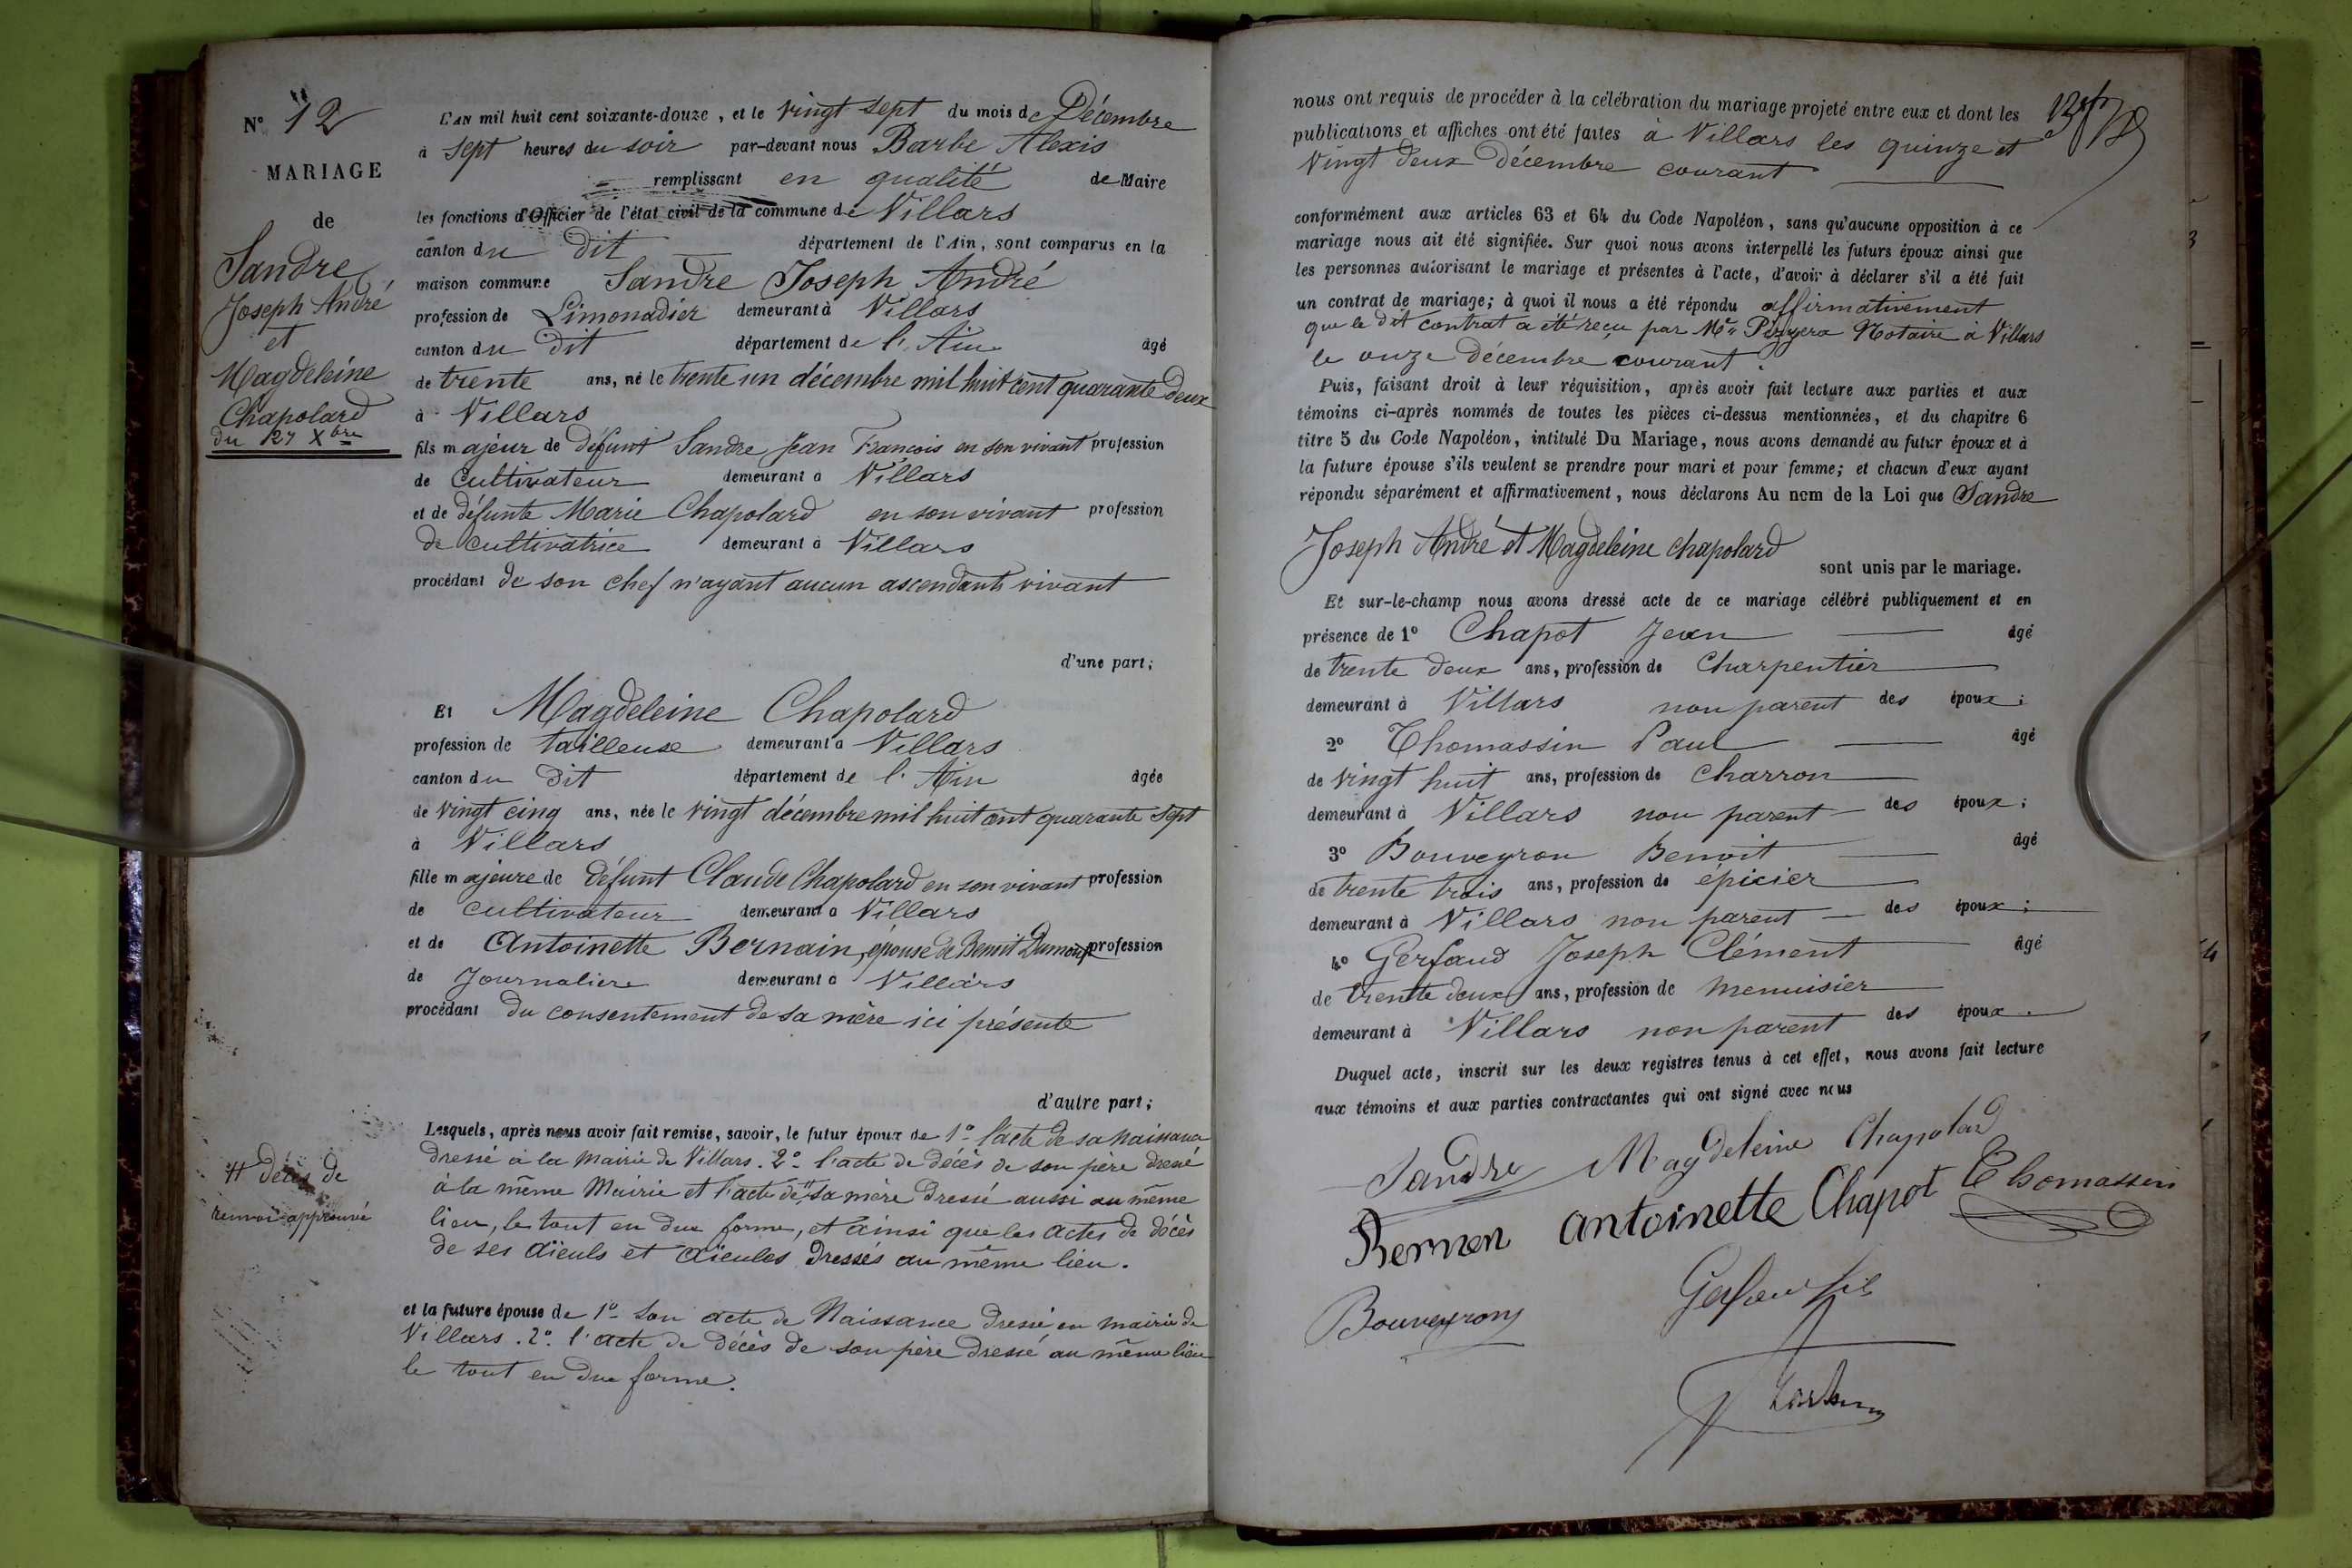 N° 12
MARIAGE
de
Sandre
Joseph André
et
Magdeleine
Chapolard
du 27 Xbre
L'AN mil huit cent soixante-douze, et le vingt sept du mois de Décembre
à sept heures du soir par-devant nous Barbe Alexis
remplissant en qualité de Maire
les fonctions d'Officier de l'état civil de la commune de Villars
canton du dit département de l'Ain, sont comparus en la
maison commune Sandre Joseph André
profession de Limonadier demeurant à Villars
canton du dit département de l'Ain âgé
de trente ans, né le trente un décembre mil huit cent quarante deux
à Villars
fils majeur de défunt Sandre Jean François en son vivant profession
de Cultivateur demeurant à Villars
et de défunte Marie Chapolard en son vivant profession
de cultivatrice demeurant à Villars
procédant de son chef n'ayant aucun ascendants vivant
d'une part;
Et Magdeleine Chapolard
profession de tailleuse demeurant à Villars
canton du dit département de l'Ain âgée
de vingt cinq ans, née le vingt décembre mil huit cent quarante sept
à Villars
fille majeure de défunt Claude Chapolard en son vivant profession
de cultivateur demeurant à Villars
et de Antoinette Bernain, épouse de Benoit Dumont profession
de Journaliere demeurant à Villars
procédant du consentement de sa mère ici présente
d'autre part;
Lesquels, après nous avoir fait remise, savoir, le futur époux de 1° l'acte de sa naissance
dressé à la Mairie de Villars. 2° l'acte de décès de son père dressé
à la même Mairie et l'acte de # sa mère dressé aussi au même
lieu, le tout en due forme, et ainsi que les actes de décès
de ses aïeuls et aïeules dressés au même lieu.
# décès de
renvoi approuvé
et la future épouse de 1° son acte de Naissance dressé en mairie de
Villars. 2° l'acte de décès de son père dressé au même lieu
le tout en due forme.
nous ont requis de procéder à la célébration du mariage projeté entre eux et dont les
publications et affiches ont été faites à Villars les quinze et
vingt deux Décembre courant
conformément aux articles 63 et 64 du Code Napoléon, sans qu'aucune opposition à ce
mariage nous ait été signifiée. Sur quoi nous avons interpellé les futurs époux ainsi que
les personnes autorisant le mariage et présentes à l'acte, d'avoir à déclarer s'il a été fait
un contrat de mariage; à quoi il nous a été répondu affirmativement
que le dit contrat a été reçu par Me Notaire à Villars
le onze décembre courant.
Puis, faisant droit à leur réquisition, après avoir fait lecture aux parties et aux
témoins ci-après nommés de toutes les pièces ci-dessus mentionnées, et du chapitre 6
titre 5 du Code Napoléon, intitulé Du Mariage, nous avons demandé au futur époux et à
la future épouse s'ils veulent se prendre pour mari et pour femme; et chacun d'eux ayant
répondu séparément et affirmativement, nous déclarons Au nom de la Loi que Sandre
Joseph André et Magdeleine Chapolard
sont unis par le mariage.
Et sur-le-champ nous avons dressé acte de ce mariage célébré publiquement et en
présence de 1° Chapot Jean âgé
de trente deux ans, profession de Charpentier
demeurant à Villars non parent des époux;
2° Thomassin Paul âgé
de vingt huit ans, profession de Charron
demeurant à Villars non parent des époux;
3° Bouveyron Benoit âgé
de trente trois ans, profession de épicier
demeurant à Villars non parent des époux;
4° Gerfaud Joseph Clément âgé
de trente deux ans, profession de Menuisier
demeurant à Villars non parent des époux.
Duquel acte, inscrit sur les deux registres tenus à cet effet, nous avons fait lecture
aux témoins et aux parties contractantes qui ont signé avec nous
Sandre Magdeleine Chapolard
Bernen antoinette Chapot Thomassin
Bouveyron